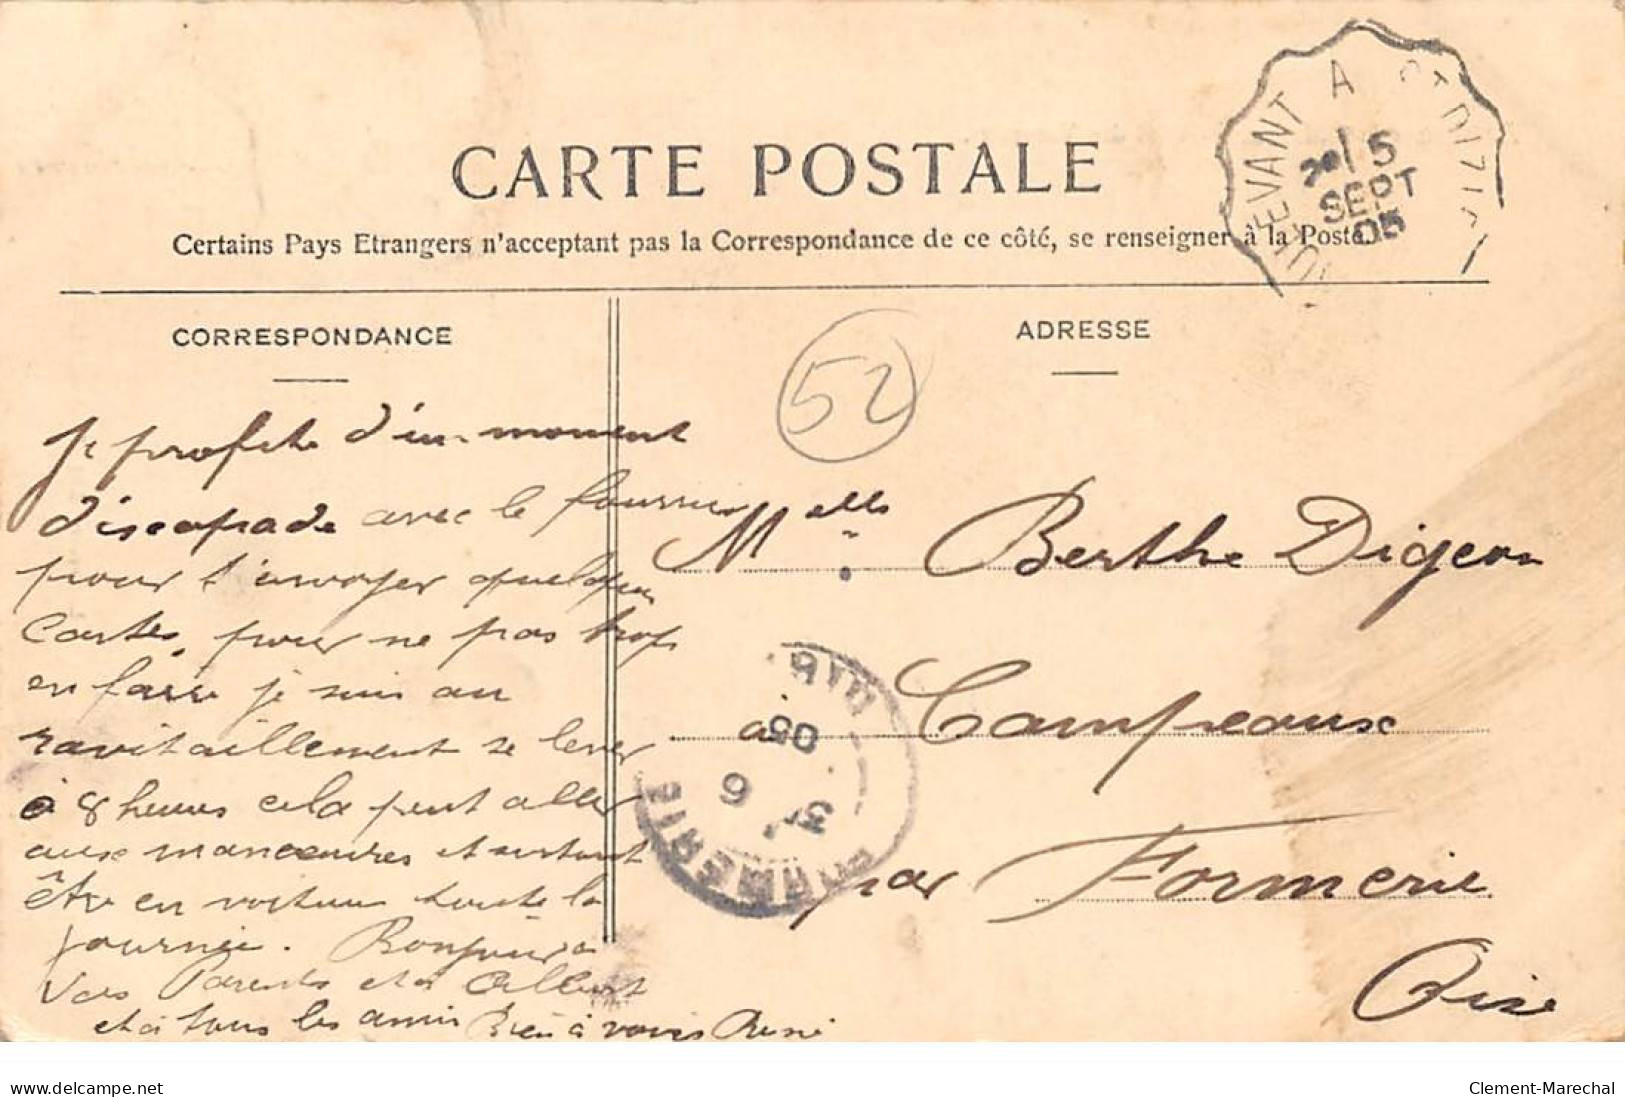 CARTE POSTALE
Certains Pays Etrangers n'acceptant pas la Correspondance de ce côté, se renseigner à la Poste.
EVANT A
5
SEPT
05
CORRESPONDANCE
ADRESSE
52
Je profite d'un moment
d'iscapade avec le fourrier
pour t'envoyer quelques
Cartes, pour ne pas trop
en faire je suis au
ravitaillement se lever
à 8 heures cela peut aller
aux manoeuvres et surtout
être en voiture toute la
journée. Bonjour à
Vos Parents et à Albert
et à tous les amis Bien à vous René
Melle Berthe Digeon
à Campeaux
par Formerie
Oise
FORMERIE
6
05
www.delcampe.net
Clement-Marechal